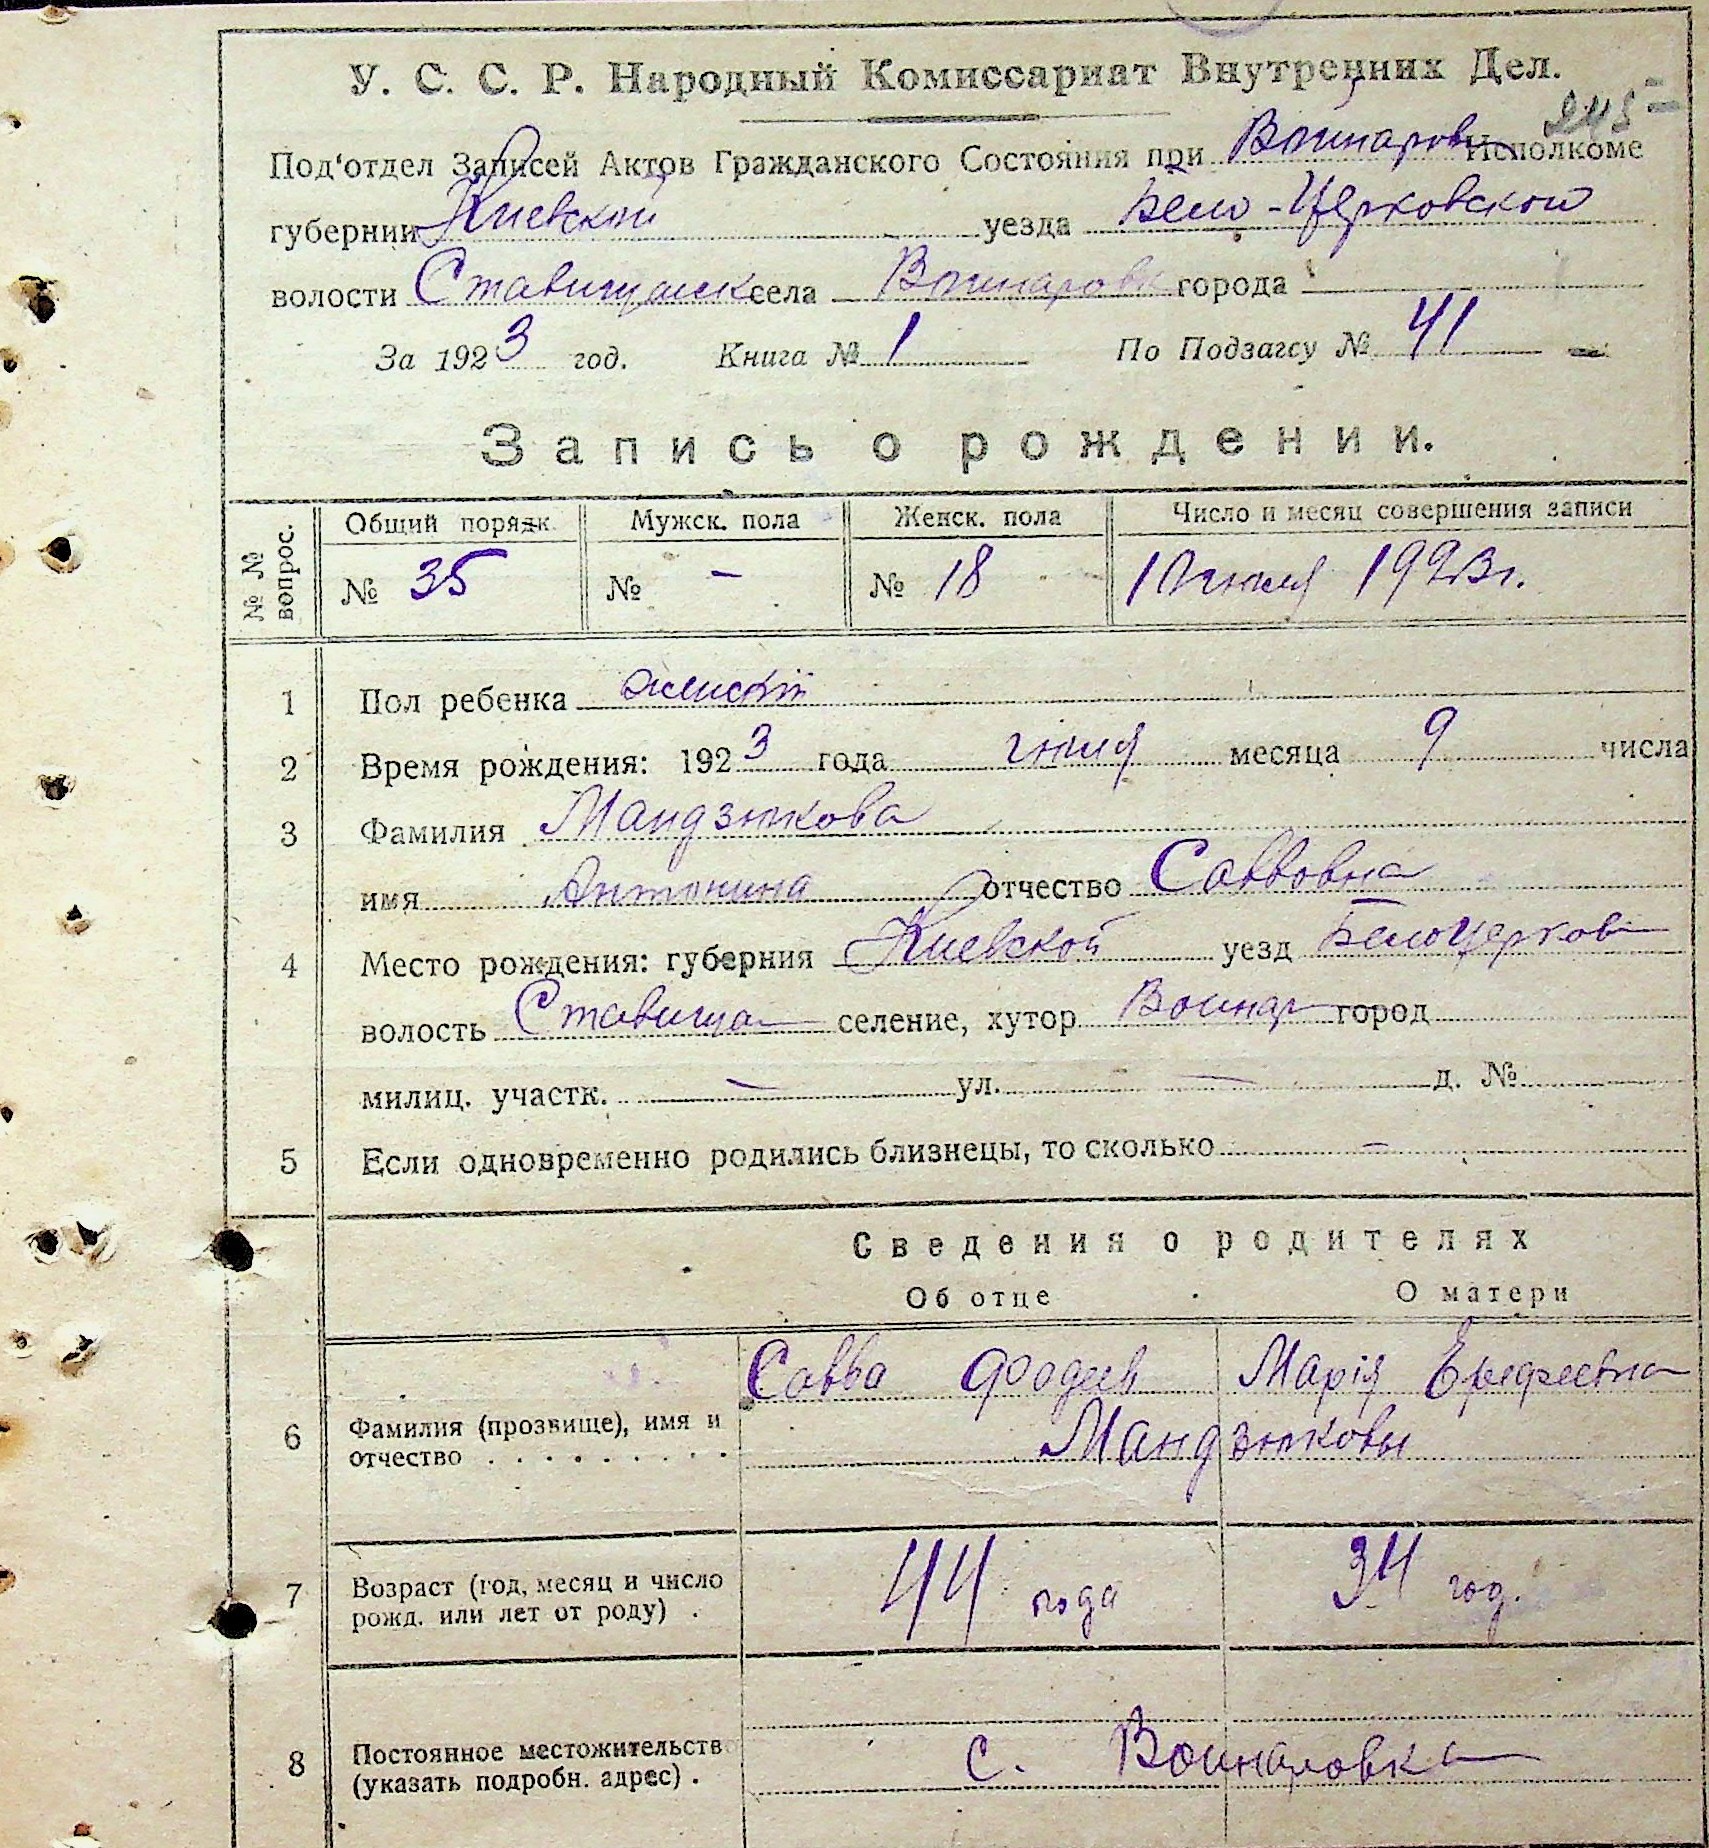 У. С. С. Р. Народный Комиссариат Внутренних Дел.
245
Под'отдел Записей Актов Гражданского Состояния при Войнаров Исполкоме
губернии Киевской уезда Бело-Церковской
волости Ставищанск села Войнаровк города
За 1923 год. Книга № 1 По Подзагсу № 41
Запись о рождении.
№ № вопрос.
Общий порядк. Мужск. пола Женск. пола Число и месяц совершения записи
№ 35 № - № 18 10 июля 1923 г.
1 Пол ребенка женскій
2 Время рождения: 1923 года июля месяца 9 числа
3 Фамилия Мандзюкова
имя Антонина отчество Саввовна
4 Место рождения: губерния Киевской уезд Белоцерков
волость Ставища селение, хутор Воинар город
милиц. участк. — ул. — д. №
5 Если одновременно родились близнецы, то сколько -
Сведения о родителях
Об отце О матери
Савва Фадеев Марія Ерофеевна
6 Фамилия (прозвище), имя и
отчество . . . . . . . . . Мандзюковы
7 Возраст (год, месяц и число
рожд. или лет от роду) . 44 года 34 год.
8 Постоянное местожительств
(указать подробн. адрес) . с. Воинаровка